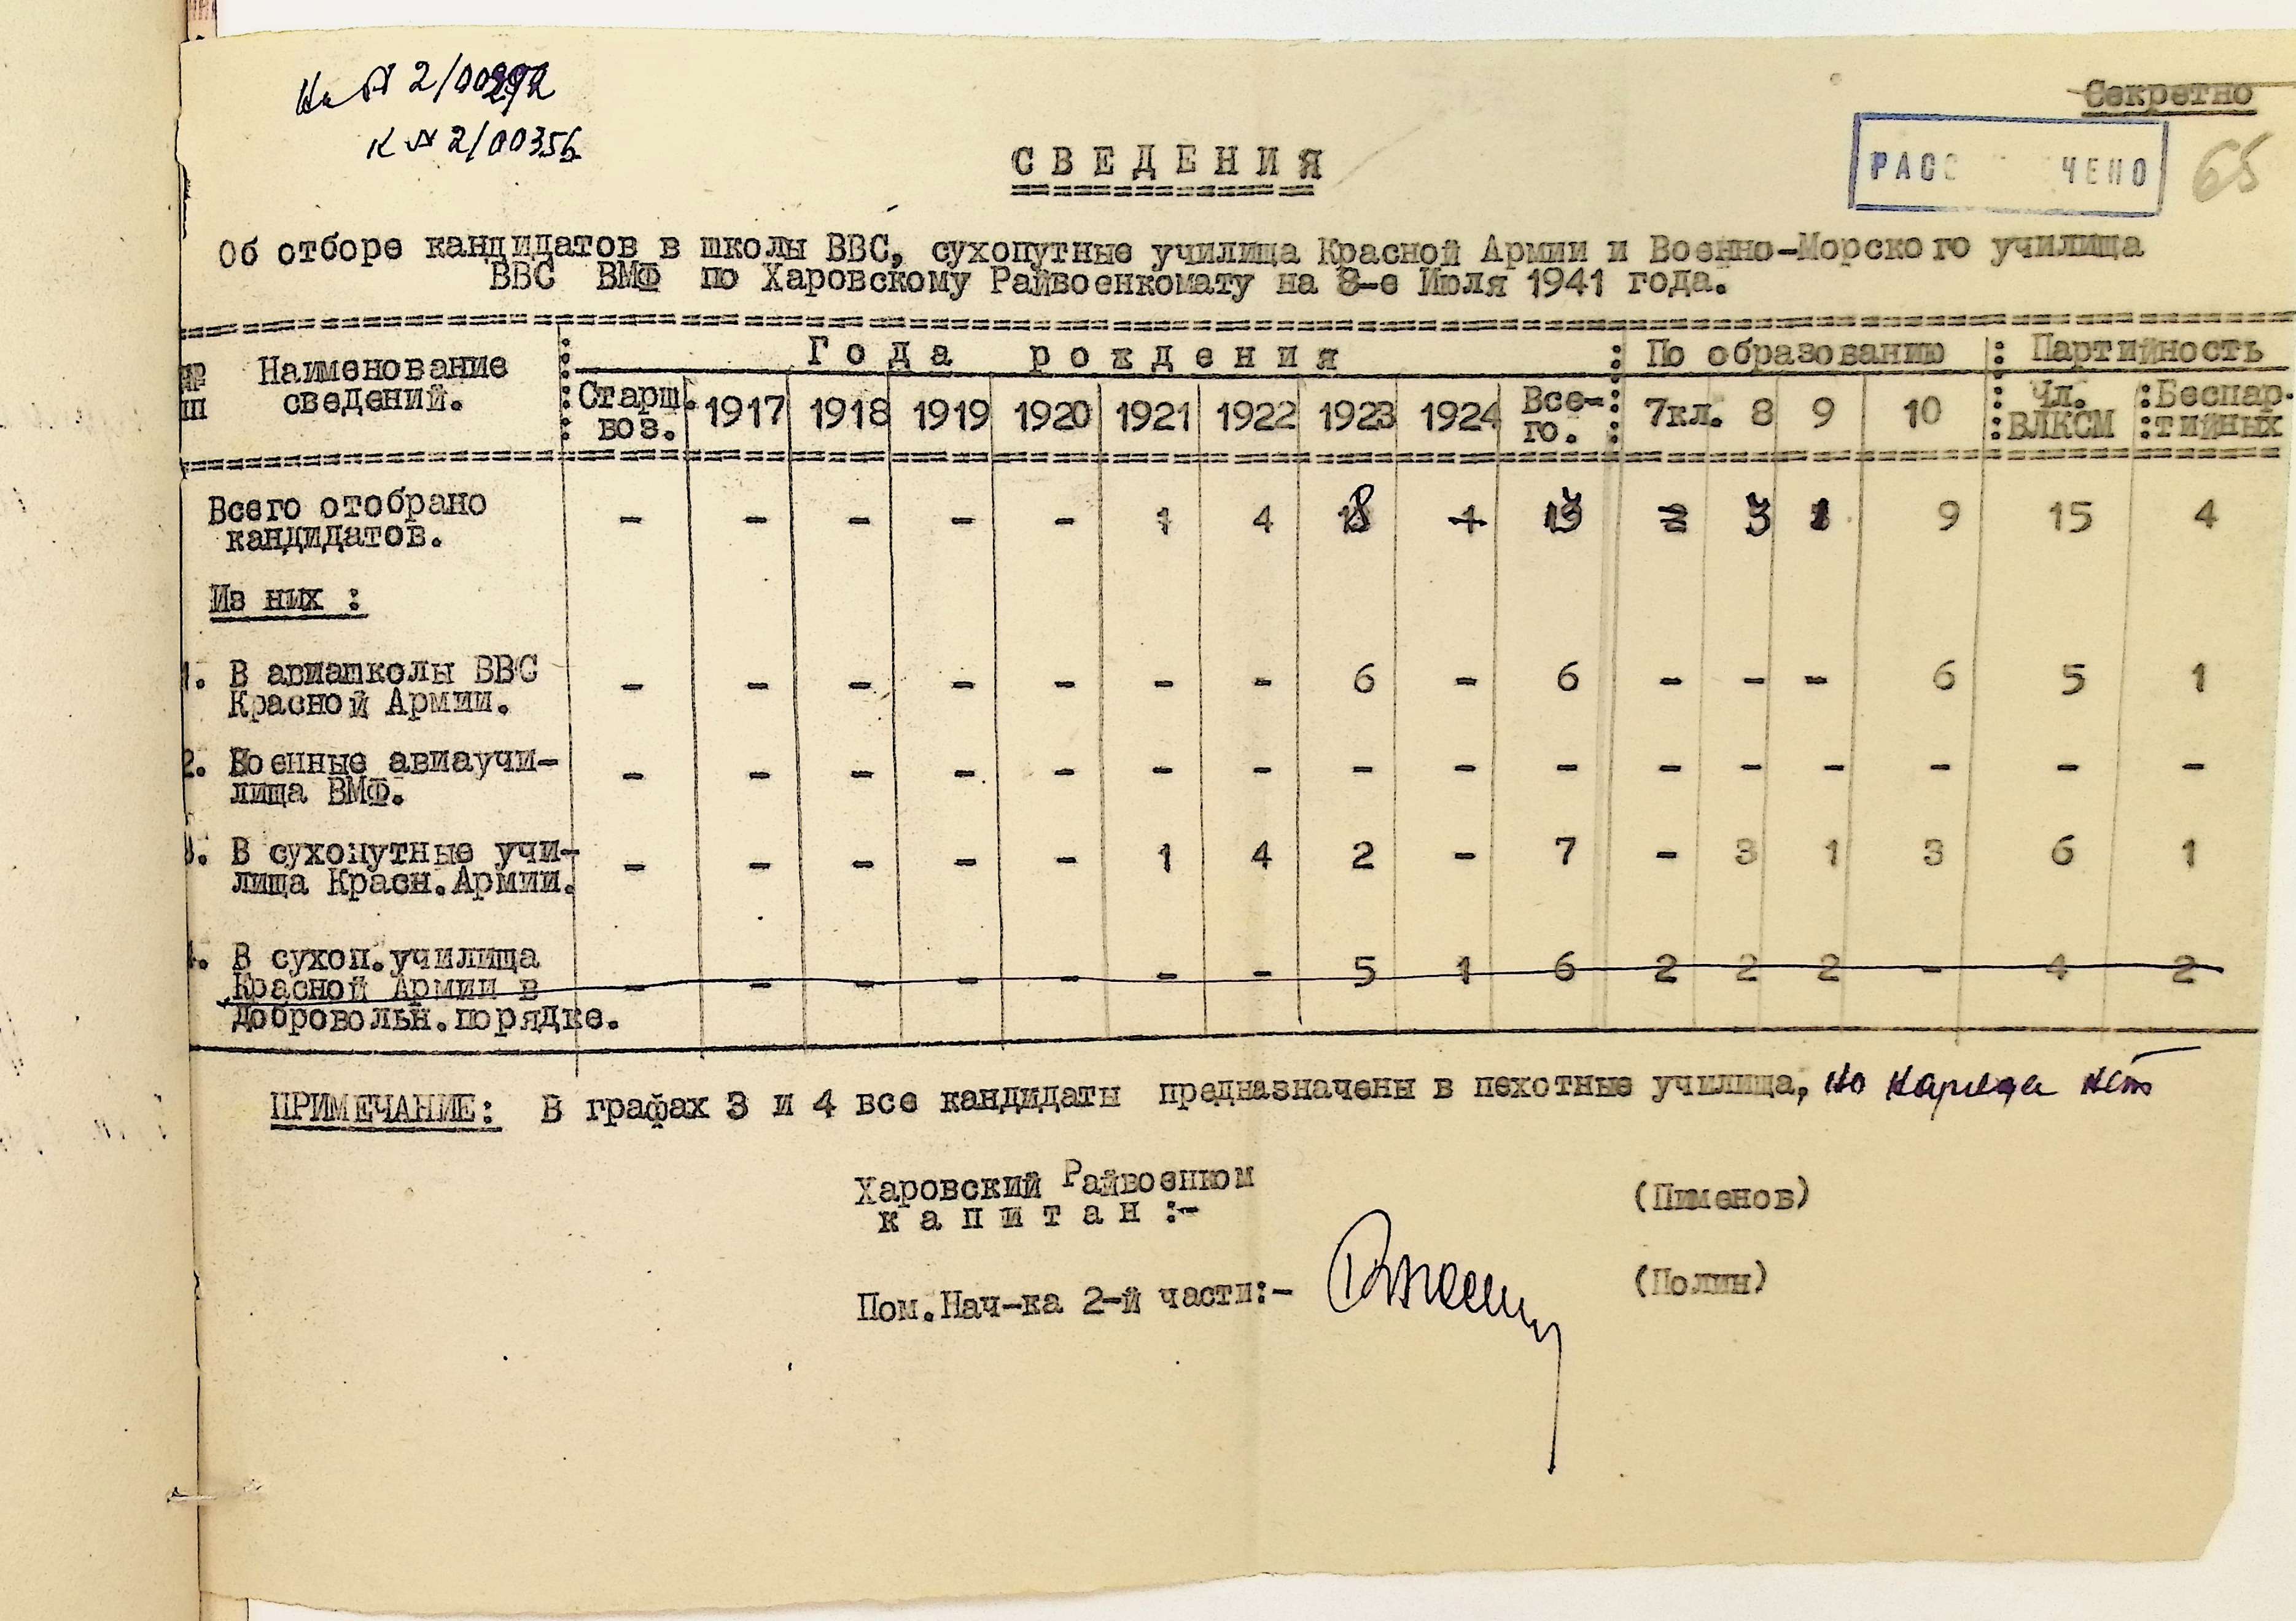 К № 2/00356
Секретно
65
СВЕДЕНИЯ
Об отборе кандидатов в школы ВВС, сухопутные училища Красной Армии и Военно-Морского училища
ВВС ВМФ по Харовскому Райвоенкомату на 8-е Июля 1941 года.
Наименование сведений. Года рождения По образованию Партийность
Старш. воз. 1917 1918 1919 1920 1921 1922 1923 1924 Все-го. 7кл. 8 9 10 Чл. ВЛКСМ Беспар-тийных
Всего отобрано - - - - - 1 4 8 1 13 2 3 1 9 15 4
кандидатов.
Из них :
1. В авиашколы ВВС - - - - - - - 6 - 6 - - - 6 5 1
Красной Армии.
2. Военные авиаучи- - - - - - - - - - - - - - - - -
лища ВМФ.
3. В сухопутные учи- - - - - - 1 4 2 - 7 - 3 1 3 6 1
лища Красн.Армии.
4. В сухоп.училища - - - - - - - 5 1 6 2 2 2 - 4 2
Красной Армии в
добровольн.порядке.
ПРИМЕЧАНИЕ: В графах 3 и 4 все кандидаты предназначены в пехотные училища, но наряда нет
Харовский Райвоенком
капитан :- (Пименов)
Пом.Нач-ка 2-й части:- (Полин)